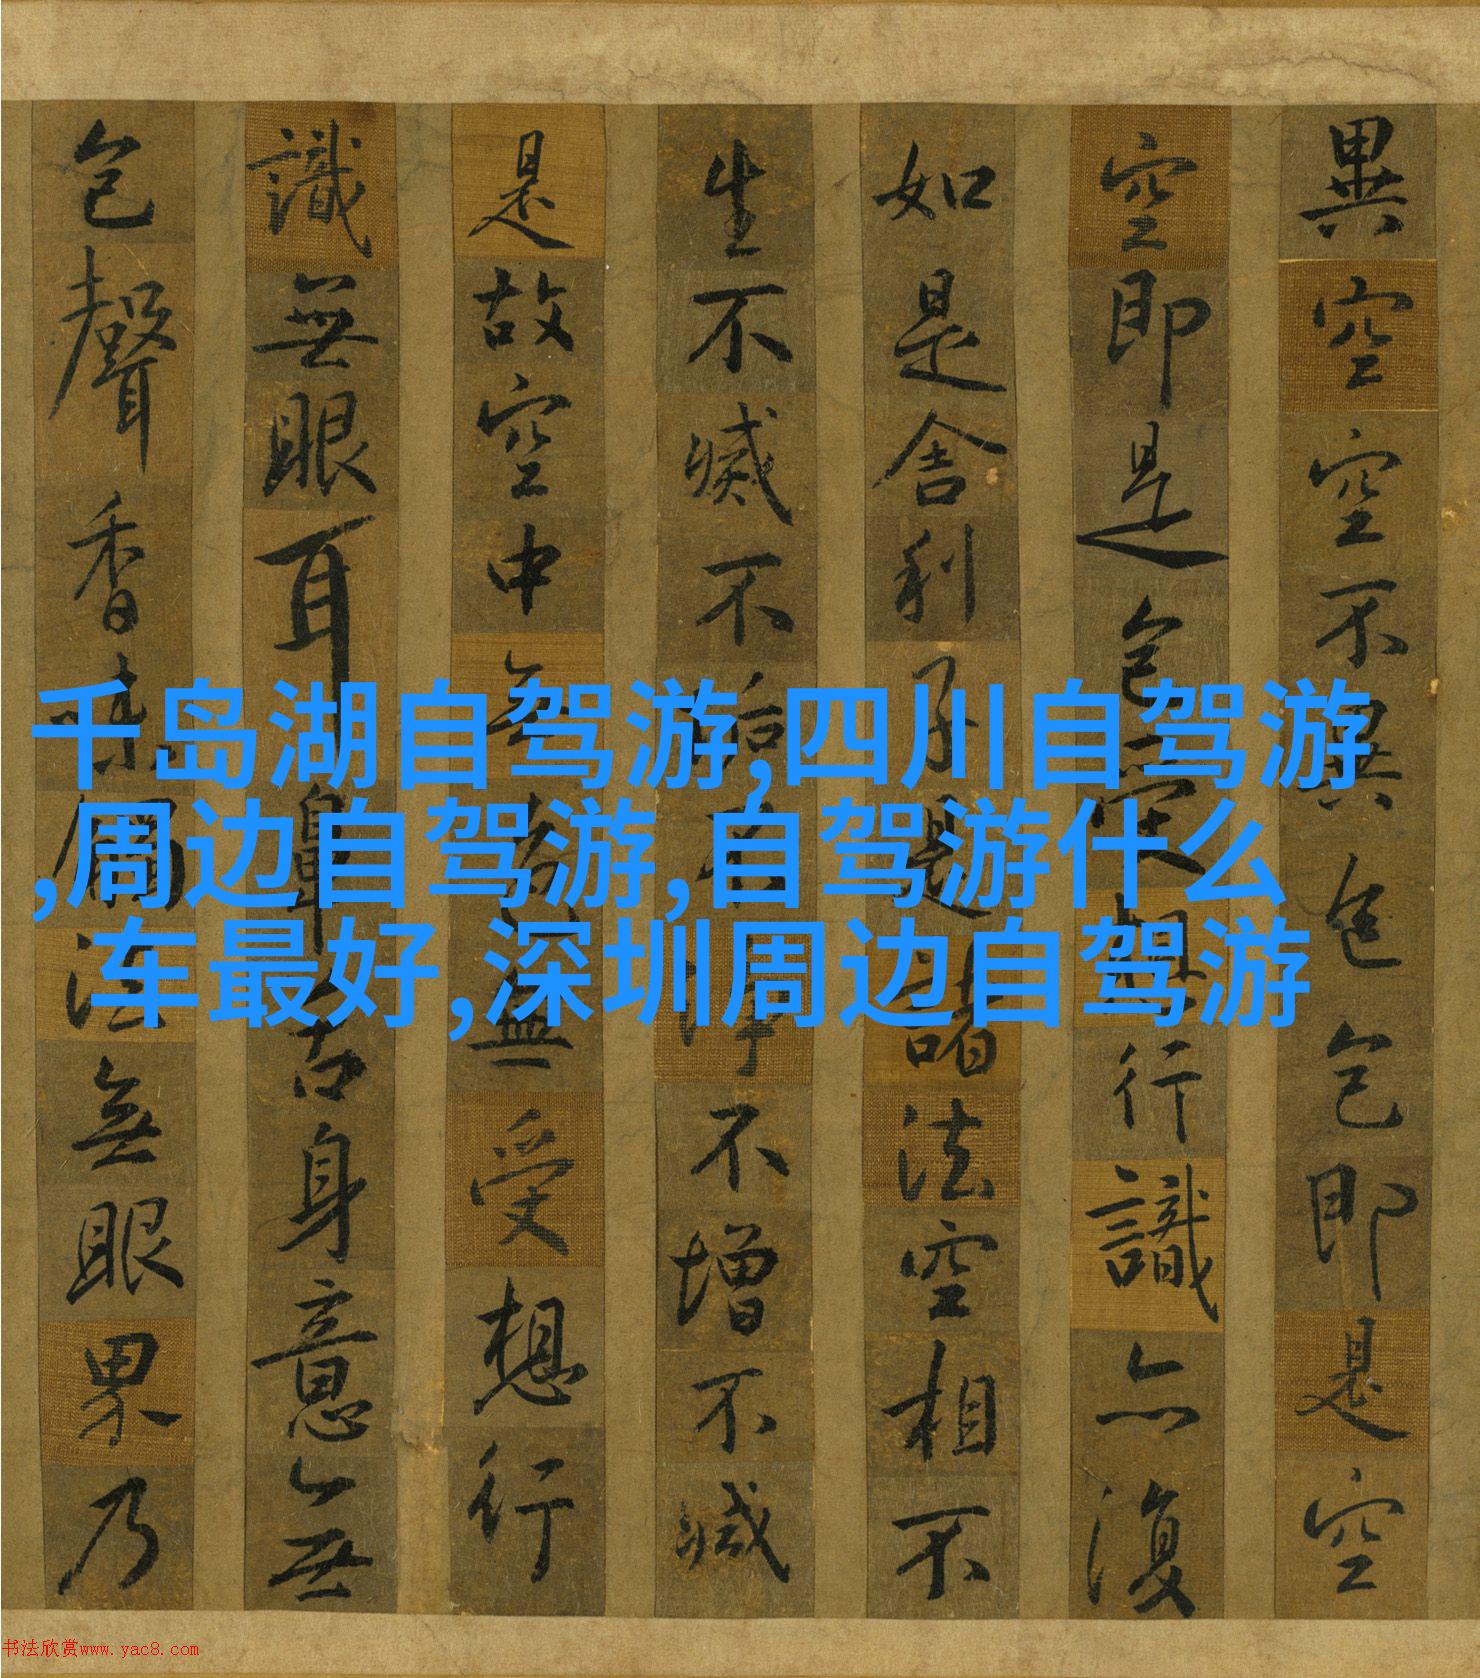 異空空不異色色即是空
空即是色受想行識亦復
如是舍利子是諸法空相不
生不滅不垢不淨不增不減
是故空中無色無受想行
識無眼耳鼻舌身意無
色聲香味觸法無眼界乃
千岛湖自驾游,四川自驾游
,周边自驾游,自驾游什么
车最好,深圳周边自驾游
书法欣赏www.yac8.com